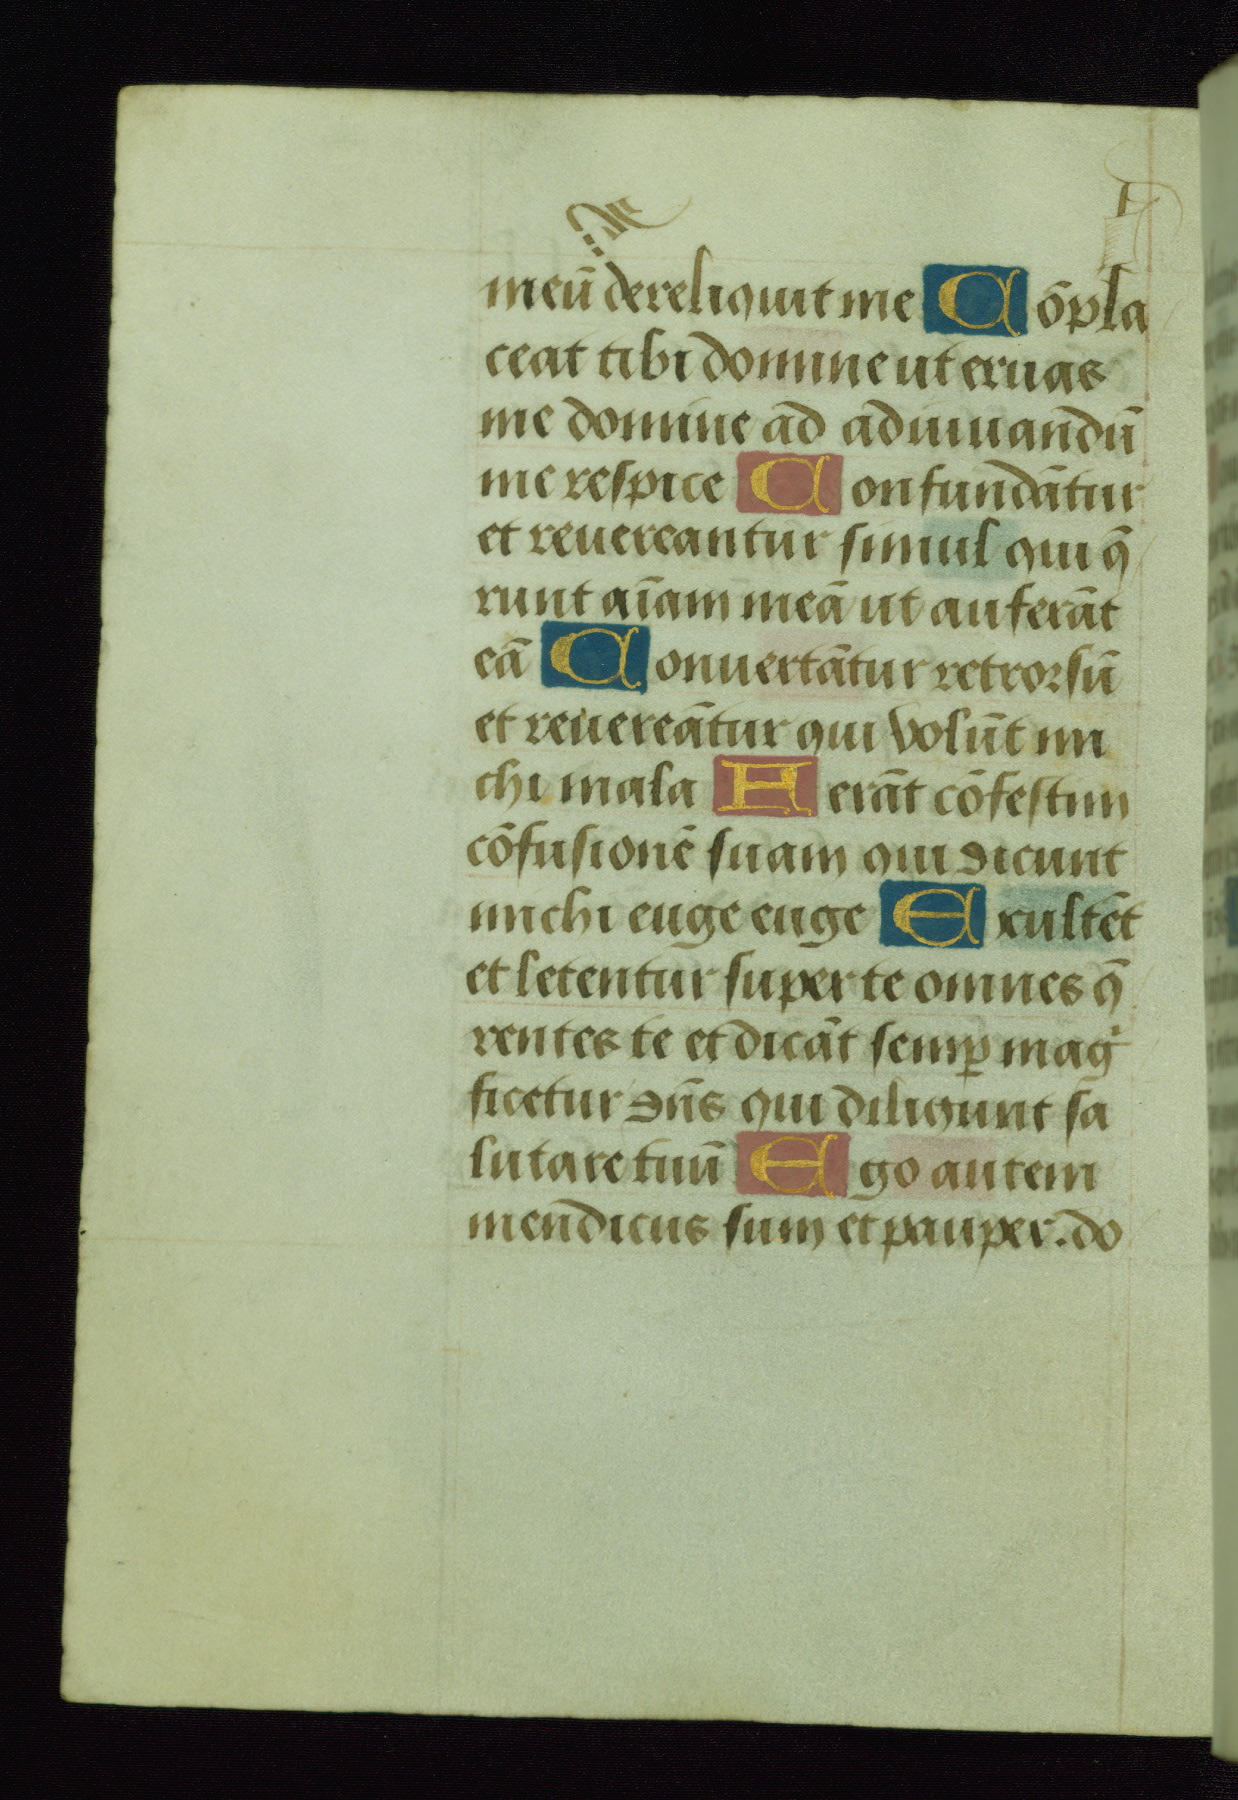 meū dereliquit me Cōpla
ceat tibi domine ut eruas
me domine ad adiuuandū
me respice Confundātur
et reuereantur simul qui q̄
runt aīam meā ut auferāt
eā Conuertātur retrorsū
et reuereātur qui volūt mi
chi mala Ferāt cōfestim
cōfusionē suam qui dicunt
michi euge euge Exultēt
et letentur super te omnes q̄
rentes te et dicāt semp̱ magͥ
ficetur dn̄s qui diligunt sa
lutare tuū Ego autem
mendicus sum et pauper. do